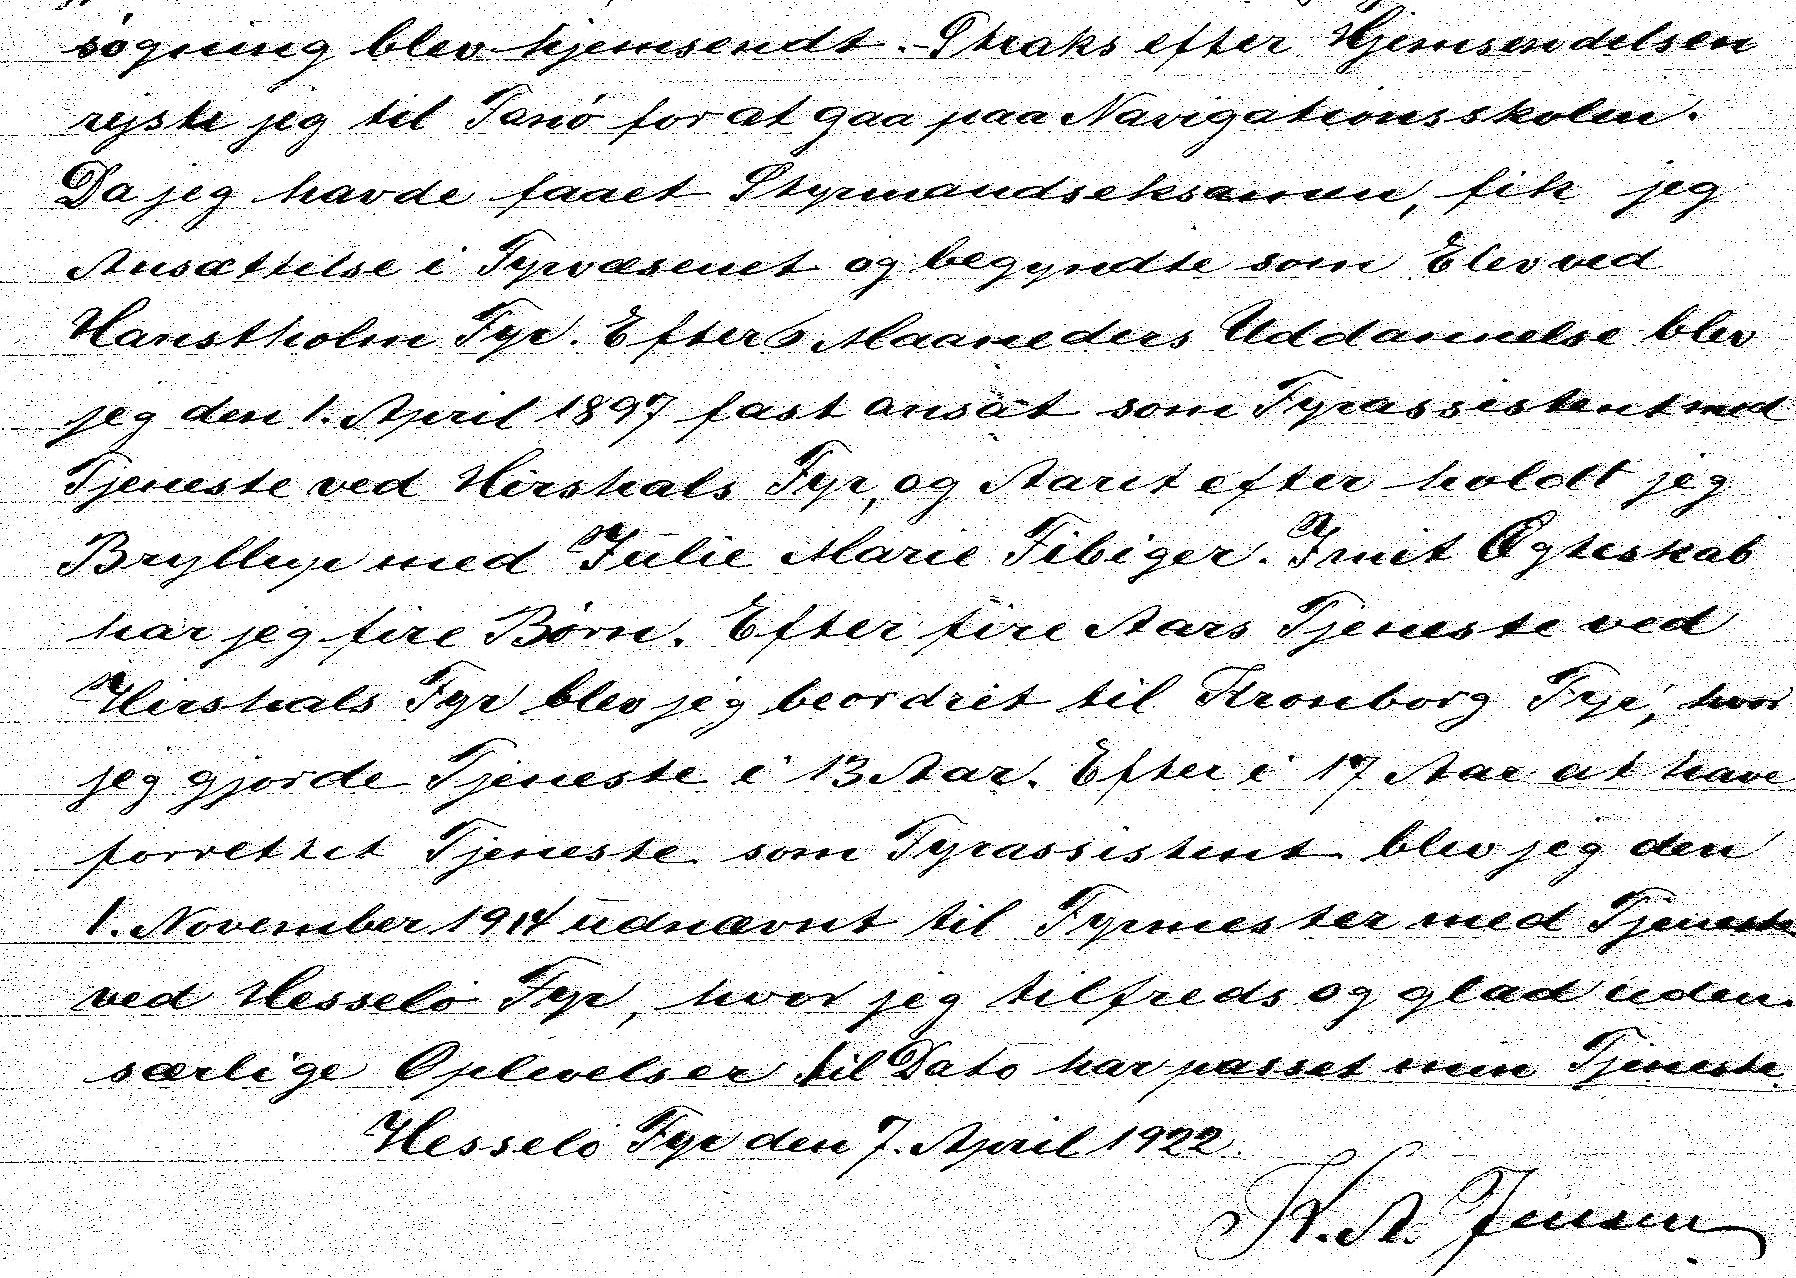 søgning blev hjemsendt. - Straks efter Hjemsendelsen
rejste jeg til Fanø for at gaa paa Navigationsskolen.
Da jeg havde faaet Styrmandseksamen, fik jeg
Ansættelse i Fyrvæsenet og begyndte som Elev ved
Hanstholm Fyr. Efter 6 Maaneders Uddannelse blev
jeg den 1. April 1897 fast ansat som Fyrassistent med
Tjeneste ved Hirshals Fyr, og Aaret efter holdt jeg
Bryllup med Julie Marie Fibiger. I mit Ægteskab
har jeg fire Børn. Efter fire Aars Tjeneste ved
Hirshals Fyr blev jeg beordret til Kronborg Fyr, hvor
jeg gjorde Tjeneste i 13 Aar. Efter i 17 Aar at have
forrettet Tjeneste som Fyrassistent blev jeg den
1. November 1914 udnævnt til Fyrmester med Tjeneste
ved Hesselø Fyr, hvor jeg tilfreds og glad uden
særlige Oplevelser til Dato har passet min Tjeneste.
Hesselø Fyr den 7. April 1922.
K. A. Jensen